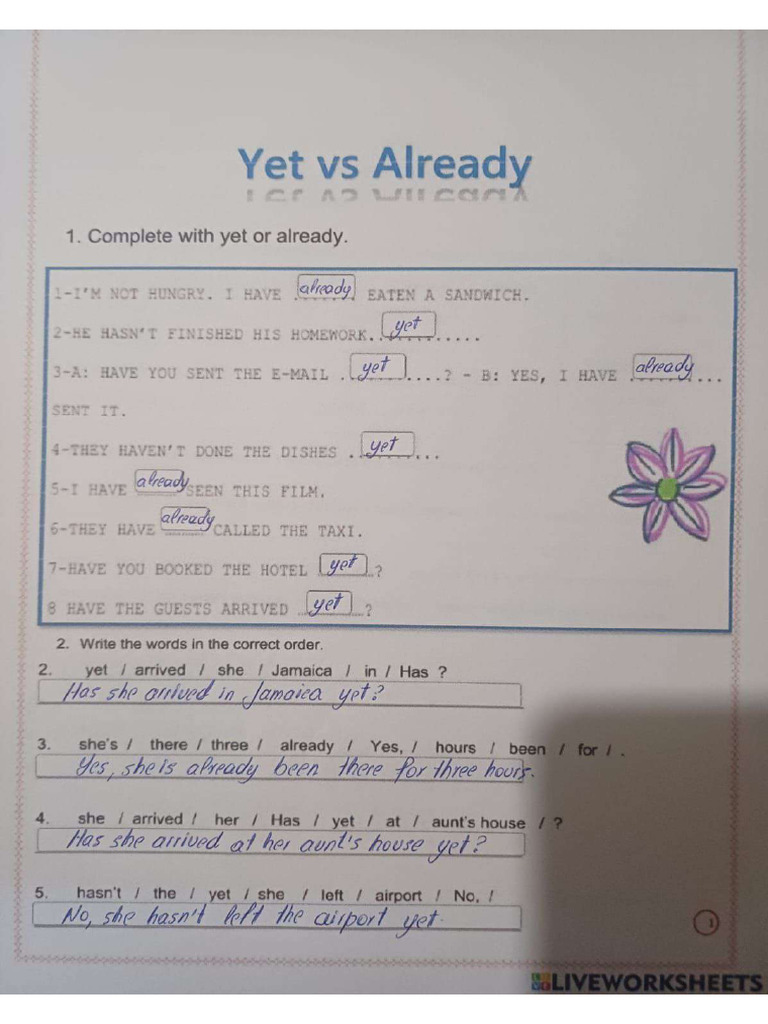 Yet vs Already
1. Complete with yet or already.
1-I'M NOT HUNGRY. I HAVE already EATEN A SANDWICH.
2-HE HASN'T FINISHED HIS HOMEWORK..yet......
3-A: HAVE YOU SENT THE E-MAIL .yet....? - B: YES, I HAVE already...
SENT IT.
4-THEY HAVEN'T DONE THE DISHES ..yet...
5-I HAVE already SEEN THIS FILM.
6-THEY HAVE already CALLED THE TAXI.
7-HAVE YOU BOOKED THE HOTEL yet..?
8 HAVE THE GUESTS ARRIVED ..yet..?
2. Write the words in the correct order.
2. yet / arrived / she / Jamaica / in / Has ?
Has she arrived in Jamaica yet?
3. she's / there / three / already / Yes, / hours / been / for / .
Yes, she is already been there for three hours.
4. she / arrived / her / Has / yet / at / aunt's house / ?
Has she arrived at her aunt's house yet?
5. hasn't / the / yet / she / left / airport / No, /
No, she hasn't left the airport yet.
1
LIVEWORKSHEETS